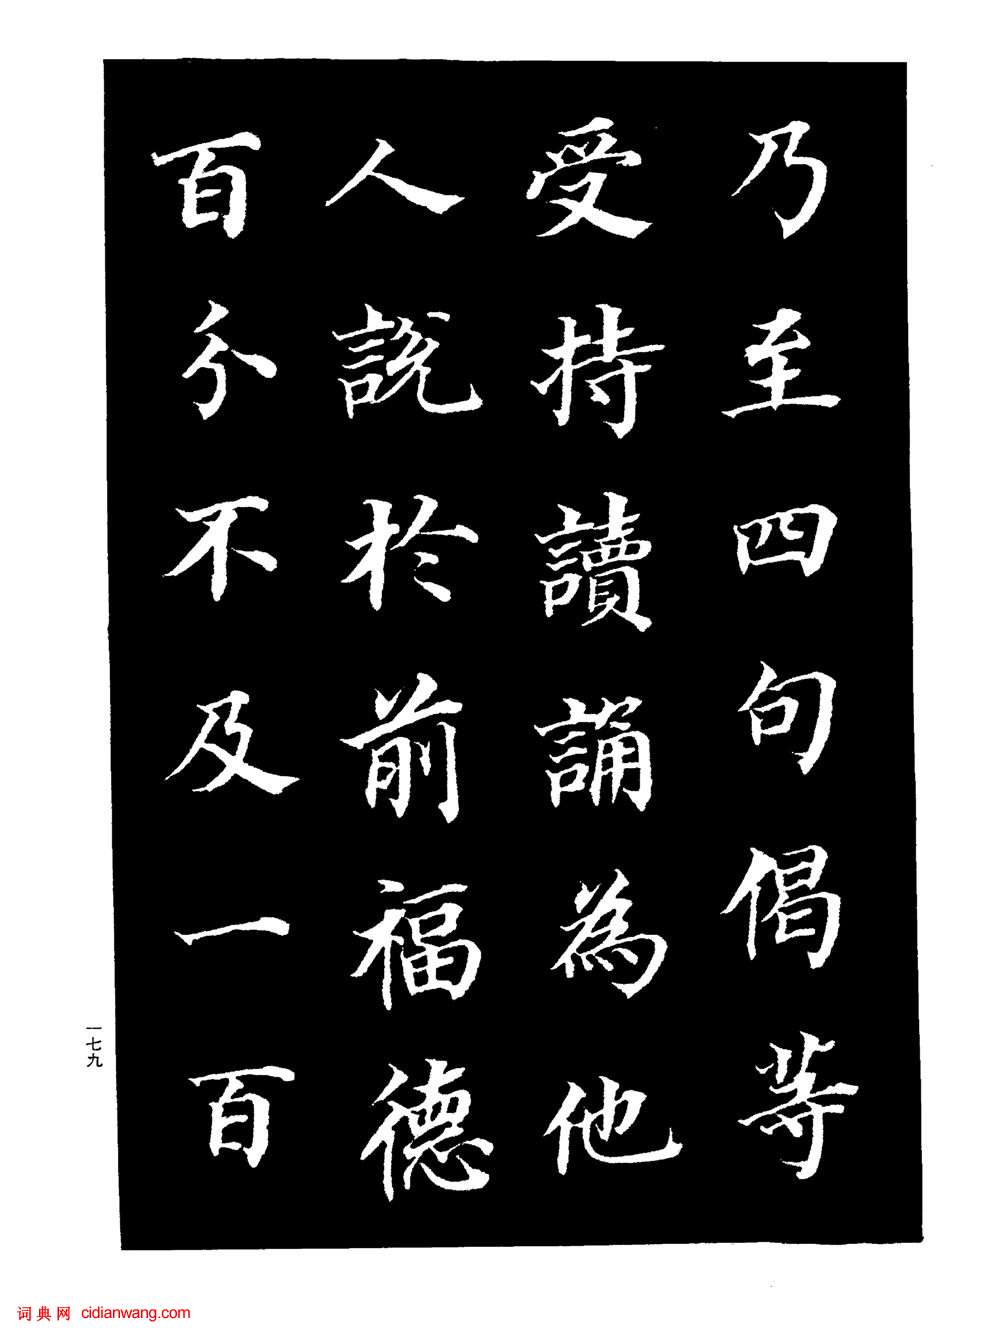 乃至四句偈等
受持讀誦為他
人說於前福德
百分不及一百
一七九
词典网 cidianwang.com